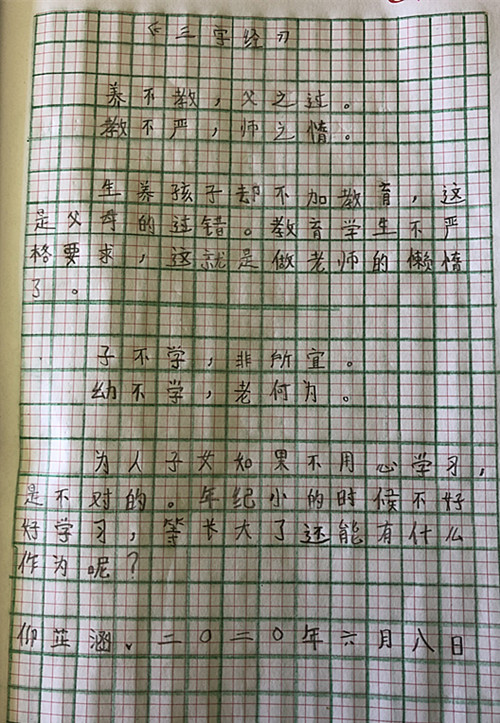 《三字经》
养不教，父之过。
教不严，师之惰。
生养孩子却不加教育，这
是父母的过错。教育学生不严
格要求，这就是做老师的懒惰
了。
子不学，非所宜。
幼不学，老何为。
为人子女如果不用心学习，
是不对的。年纪小的时候不好
好学习，等长大了还能有什么
作为呢？
芷涵、二〇二〇年六月八日